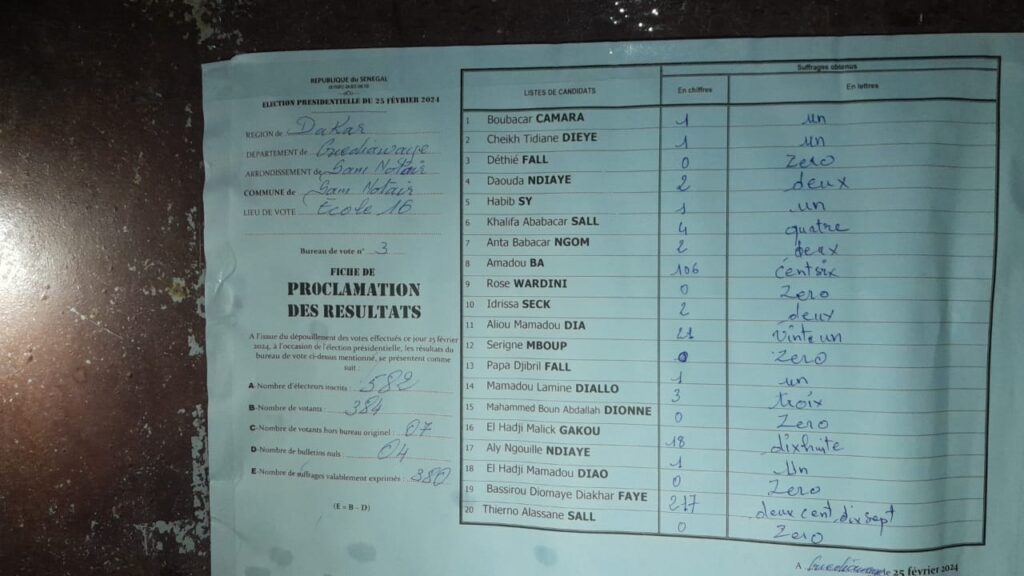 REPUBLIQUE du SENEGAL
ELECTION PRESIDENTIELLE DU 25 FÉVRIER 2024
REGION de Dakar
DEPARTEMENT de Guediawaye
ARRONDISSEMENT de Sam Notair
COMMUNE de Sam Notair
LIEU DE VOTE : Ecole 16
Bureau de vote n° 3
FICHE DE
PROCLAMATION
DES RESULTATS
A l'issue du dépouillement des votes effectués ce jour 25 février
2024, à l'occasion de l'élection présidentielle, les résultats du
bureau de vote ci-dessus mentionné, se présentent comme
suit :
A-Nombre d'électeurs inscrits : 582
B-Nombre de votants : 384
C-Nombre de votants hors bureau originel : 07
D-Nombre de bulletins nuls : 04
E-Nombre de suffrages valablement exprimés : 380
(E = B - D)
LISTES DE CANDIDATS
Suffrages obtenus
En chiffres En lettres
1 Boubacar CAMARA 1 un
2 Cheikh Tidiane DIEYE 1 un
3 Déthié FALL 0 Zero
4 Daouda NDIAYE 2 deux
5 Habib SY 1 un
6 Khalifa Ababacar SALL 4 quatre
7 Anta Babacar NGOM 2 deux
8 Amadou BA 106 cent six
9 Rose WARDINI 0 Zero
10 Idrissa SECK 2 deux
11 Aliou Mamadou DIA 21 vinte un
12 Serigne MBOUP 0 Zero
13 Papa Djibril FALL 1 un
14 Mamadou Lamine DIALLO 3 troix
15 Mahammed Boun Abdallah DIONNE 0 Zero
16 El Hadji Malick GAKOU 18 dixhuite
17 Aly Ngouille NDIAYE 1 Un
18 El Hadji Mamadou DIAO 0 Zero
19 Bassirou Diomaye Diakhar FAYE 217 deux cent dix sept
20 Thierno Alassane SALL 0 Zero
A Guediawaye le 25 février 2024